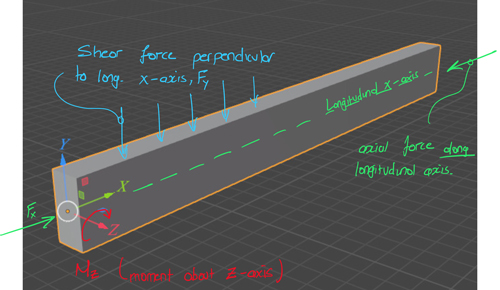 Shear force perpendicular
to long. x-axis, Fy
Longitudinal x-axis
axial force along
longitudinal axis.
Y
X
Z
Fx
Mz (moment about Z-axis)